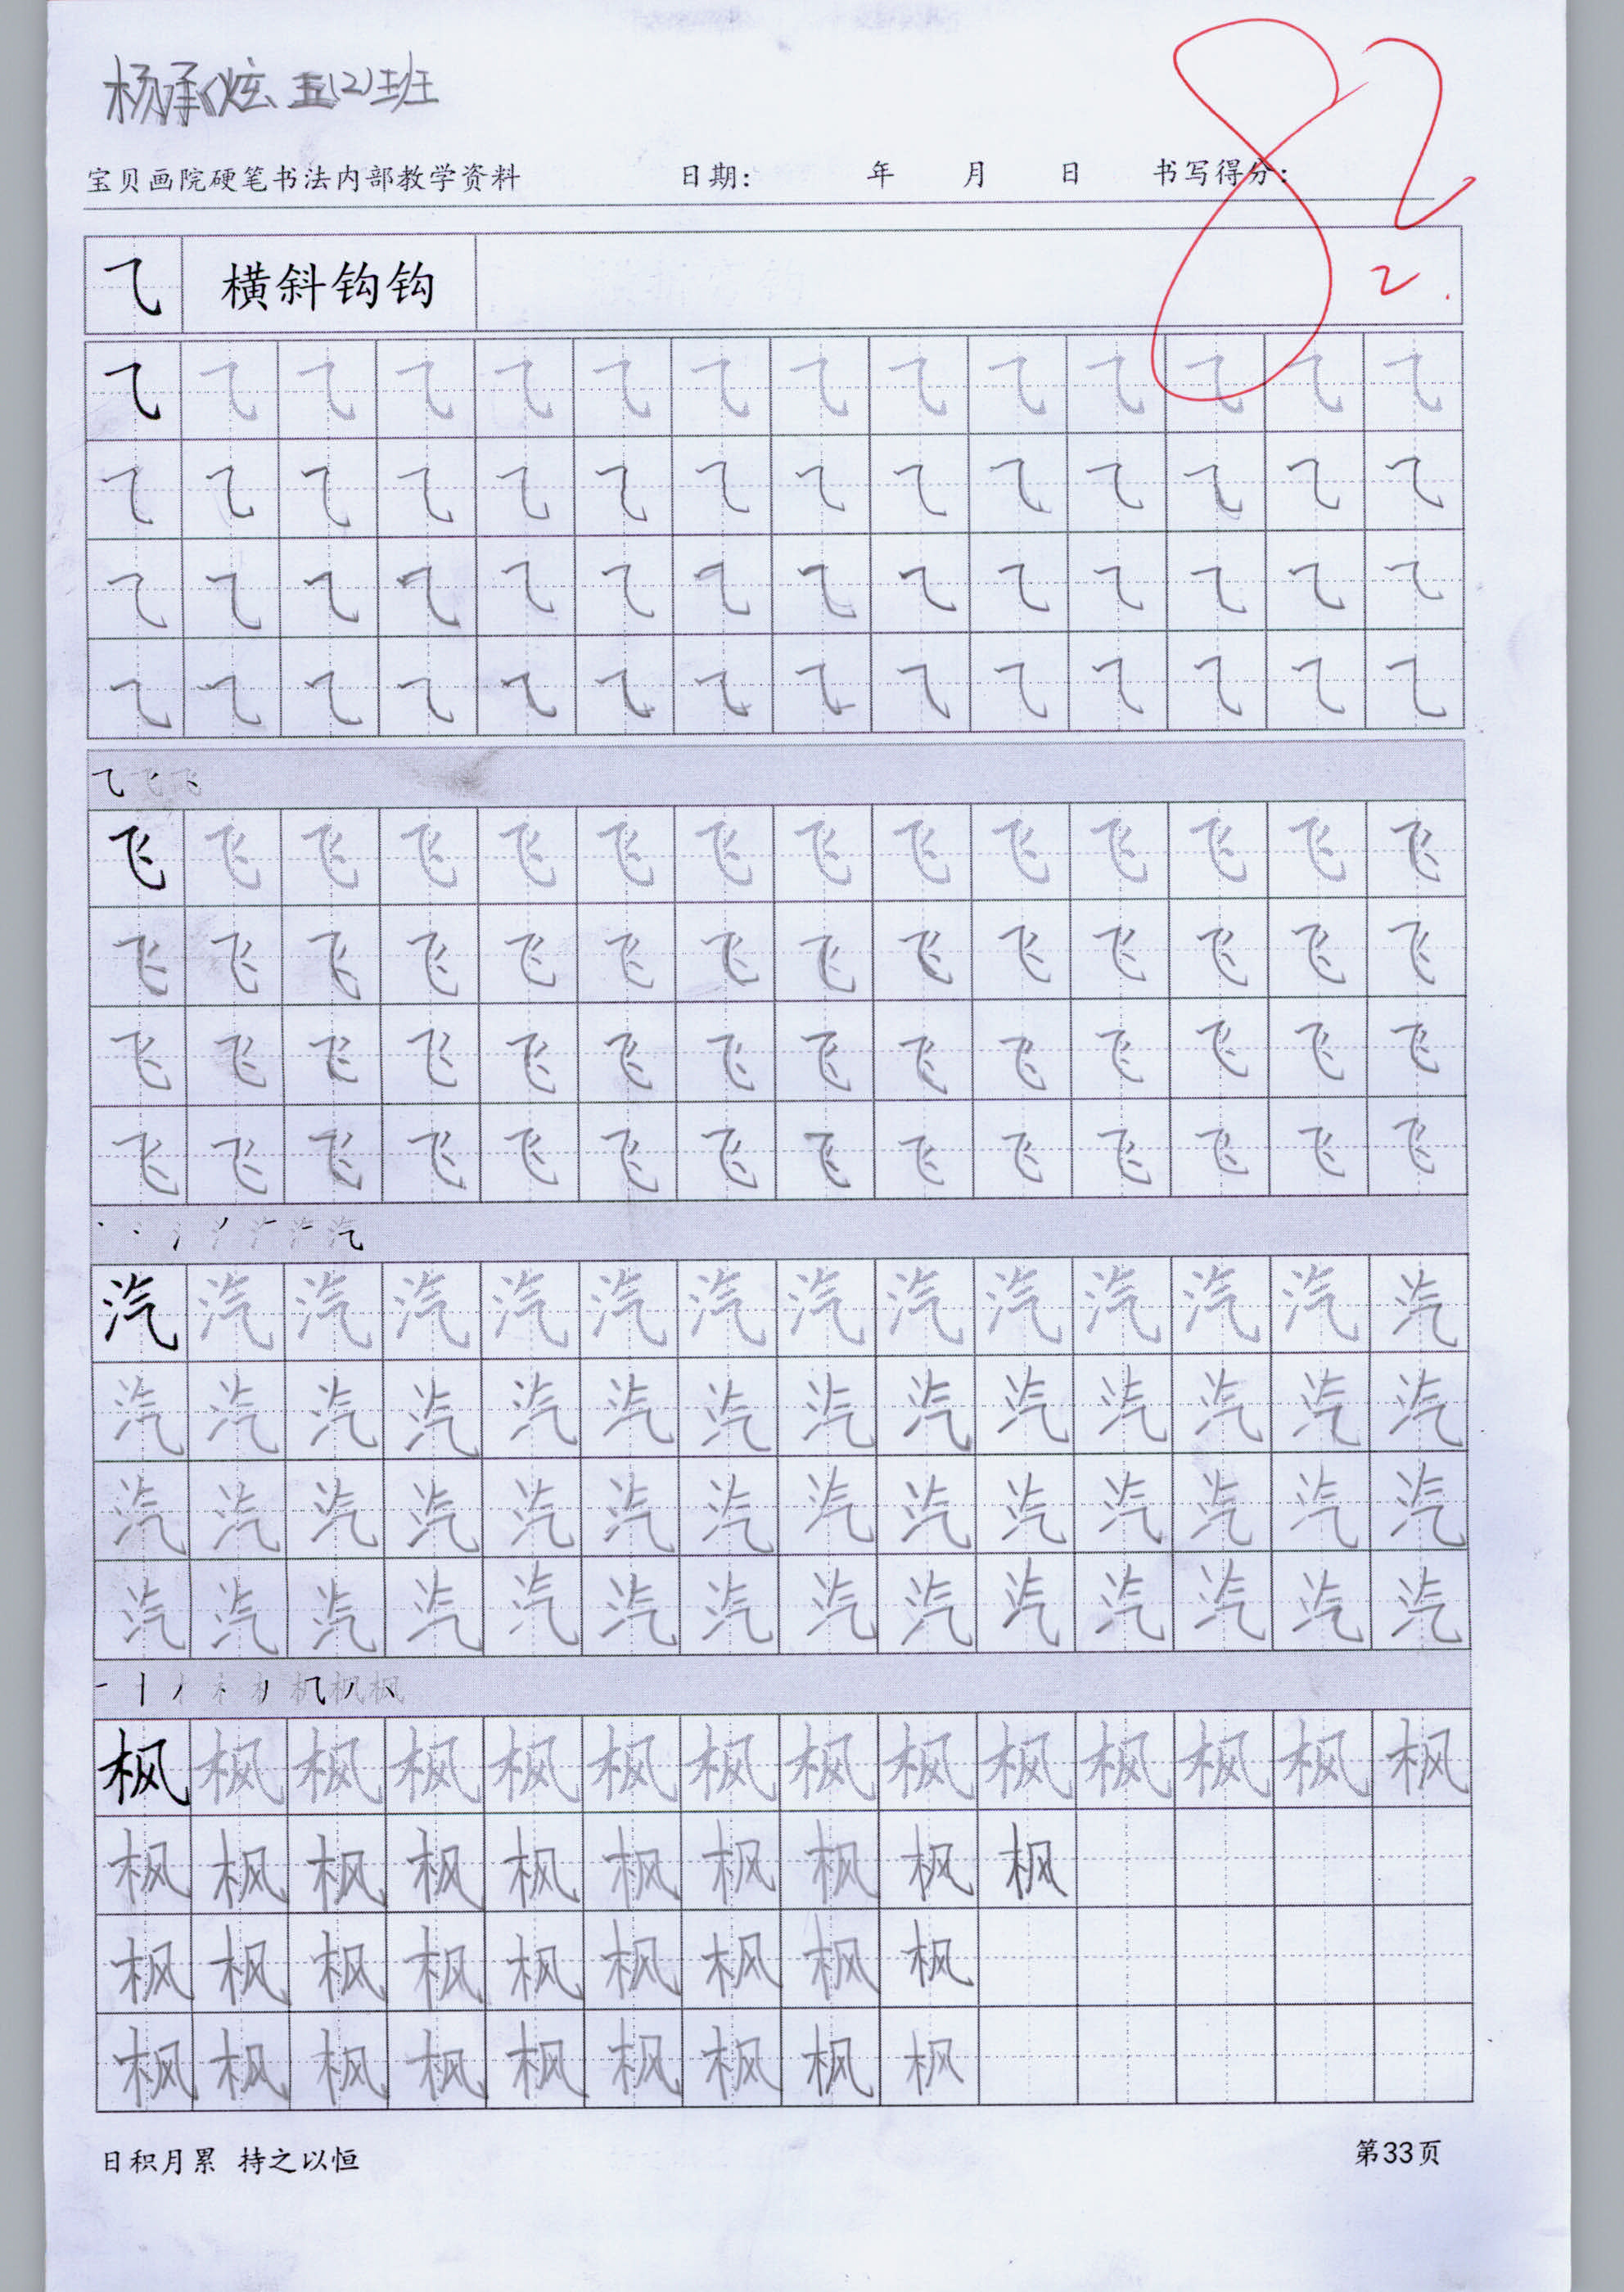 杨承炫 五(2)班
82
宝贝画院硬笔书法内部教学资料 日期: 年 月 日 书写得分:
⺄ 横斜钩钩 2.
⺄ ⺄ ⺄ ⺄ ⺄ ⺄ ⺄ ⺄ ⺄ ⺄ ⺄ ⺄ ⺄ ⺄
⺄ ⺄ ⺄ ⺄ ⺄ ⺄ ⺄ ⺄ ⺄ ⺄ ⺄ ⺄ ⺄ ⺄
⺄ ⺄ ⺄ ⺄ ⺄ ⺄ ⺄ ⺄ ⺄ ⺄ ⺄ ⺄ ⺄ ⺄
⺄ ⺄ ⺄ ⺄ ⺄ ⺄ ⺄ ⺄ ⺄ ⺄ ⺄ ⺄ ⺄ ⺄
飞 飞 飞 飞 飞 飞 飞 飞 飞 飞 飞 飞 飞 飞
飞 飞 飞 飞 飞 飞 飞 飞 飞 飞 飞 飞 飞 飞
飞 飞 飞 飞 飞 飞 飞 飞 飞 飞 飞 飞 飞 飞
飞 飞 飞 飞 飞 飞 飞 飞 飞 飞 飞 飞 飞 飞
汽 汽 汽 汽 汽 汽 汽 汽 汽 汽 汽 汽 汽 汽
汽 汽 汽 汽 汽 汽 汽 汽 汽 汽 汽 汽 汽 汽
汽 汽 汽 汽 汽 汽 汽 汽 汽 汽 汽 汽 汽 汽
汽 汽 汽 汽 汽 汽 汽 汽 汽 汽 汽 汽 汽 汽
枫 枫 枫 枫 枫 枫 枫 枫 枫 枫 枫 枫 枫 枫
枫 枫 枫 枫 枫 枫 枫 枫 枫 枫
枫 枫 枫 枫 枫 枫 枫 枫 枫
枫 枫 枫 枫 枫 枫 枫 枫 枫
日积月累 持之以恒 第33页